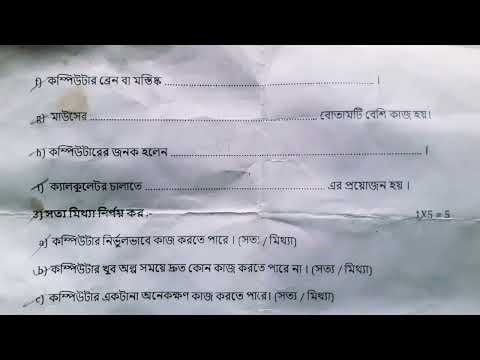 f) কম্পিউটার ব্রেন বা মস্তিষ্ক ........................................................ ।
g) মাউসের ........................................................ বোতামটি বেশি কাজ হয়।
h) কম্পিউটারের জনক হলেন ........................................................ ।
i) ক্যালকুলেটর চালাতে ........................................ এর প্রয়োজন হয় ।
3) সত্য মিথ্যা নির্ণয় কর :- 1X5 = 5
a) কম্পিউটার নির্ভুলভাবে কাজ করতে পারে । (সত্য / মিথ্যা)
b) কম্পিউটার খুব অল্প সময়ে দ্রুত কোন কাজ করতে পারে না । (সত্য / মিথ্যা)
c) কম্পিউটার একটানা অনেকক্ষণ কাজ করতে পারে। (সত্য / মিথ্যা)